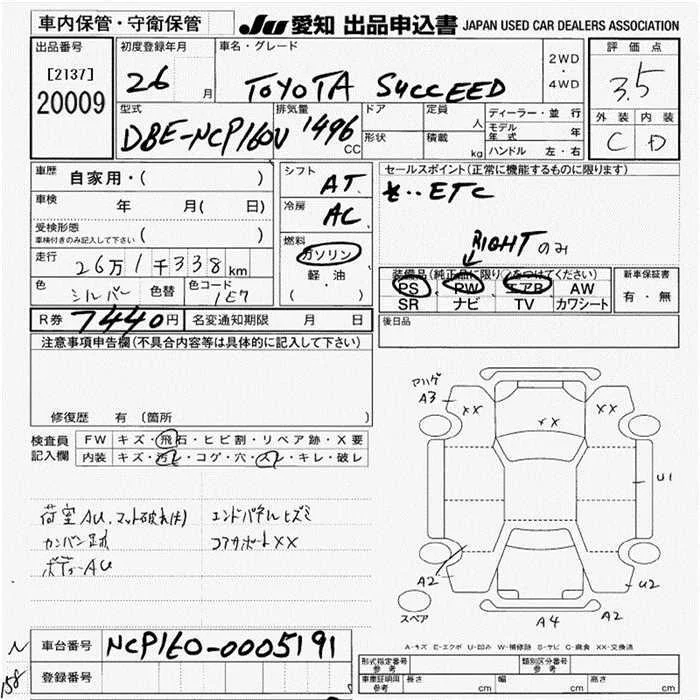 車内保管・守衛保管
JU 愛知 出品申込書 JAPAN USED CAR DEALERS ASSOCIATION
出品番号
[2137]
20009
初度登録年月
26 月
車名・グレード
TOYOTA SUCCEED
2WD
・
4WD
評価点
3.5
外装 内装
C D
型式
DBE-NCP160V
排気量
1496
CC
ドア
形状
定員
人
積載
kg
ディーラー・並行
モデル年式 年
ハンドル 左・右
車歴
自家用・( )
車検
年 月( 日)
受検形態
車検付きのみ記入して下さい ( )
走行
26万1千338km
色
シルバー
色替
色コード
1E7
シフト
AT
冷房
AC
燃料
ガソリン
軽・油
( )
セールスポイント(正常に機能するものに限ります)
キ・・ETC
RIGHTのみ
装備品(純正品に限り○をつけてください)
PS PW エアB AW
SR ナビ TV カワシート
新車保証書
有・無
R券 7440円
名変通知期限 月 日
後日品
注意事項申告欄(不具合内容等は具体的に記入して下さい)
修復歴 有 (箇所
検査員
記入欄
FW キズ・飛石・ヒビ割・リペア跡・X要
内装 キズ・汚レ・コゲ・穴・スレ・キレ・破レ
荷室AU、マット破れ(キ)
エンドパネルヒズミ
カンバン跡
コアサポートXX
ボディーAU
アハゲ
A3
XX
XX
XX
U1
A2
U2
A4
A2
スペア
A-キズ E-エクボ U-凹み W-補修跡 S-サビ C-腐食 XX-交換済
N
158
車台番号
NCP160-0005191
登録番号
形式指定番号
参考
類別区分番号
参考
車庫証明用
参考
長さ cm
幅 cm
高さ cm